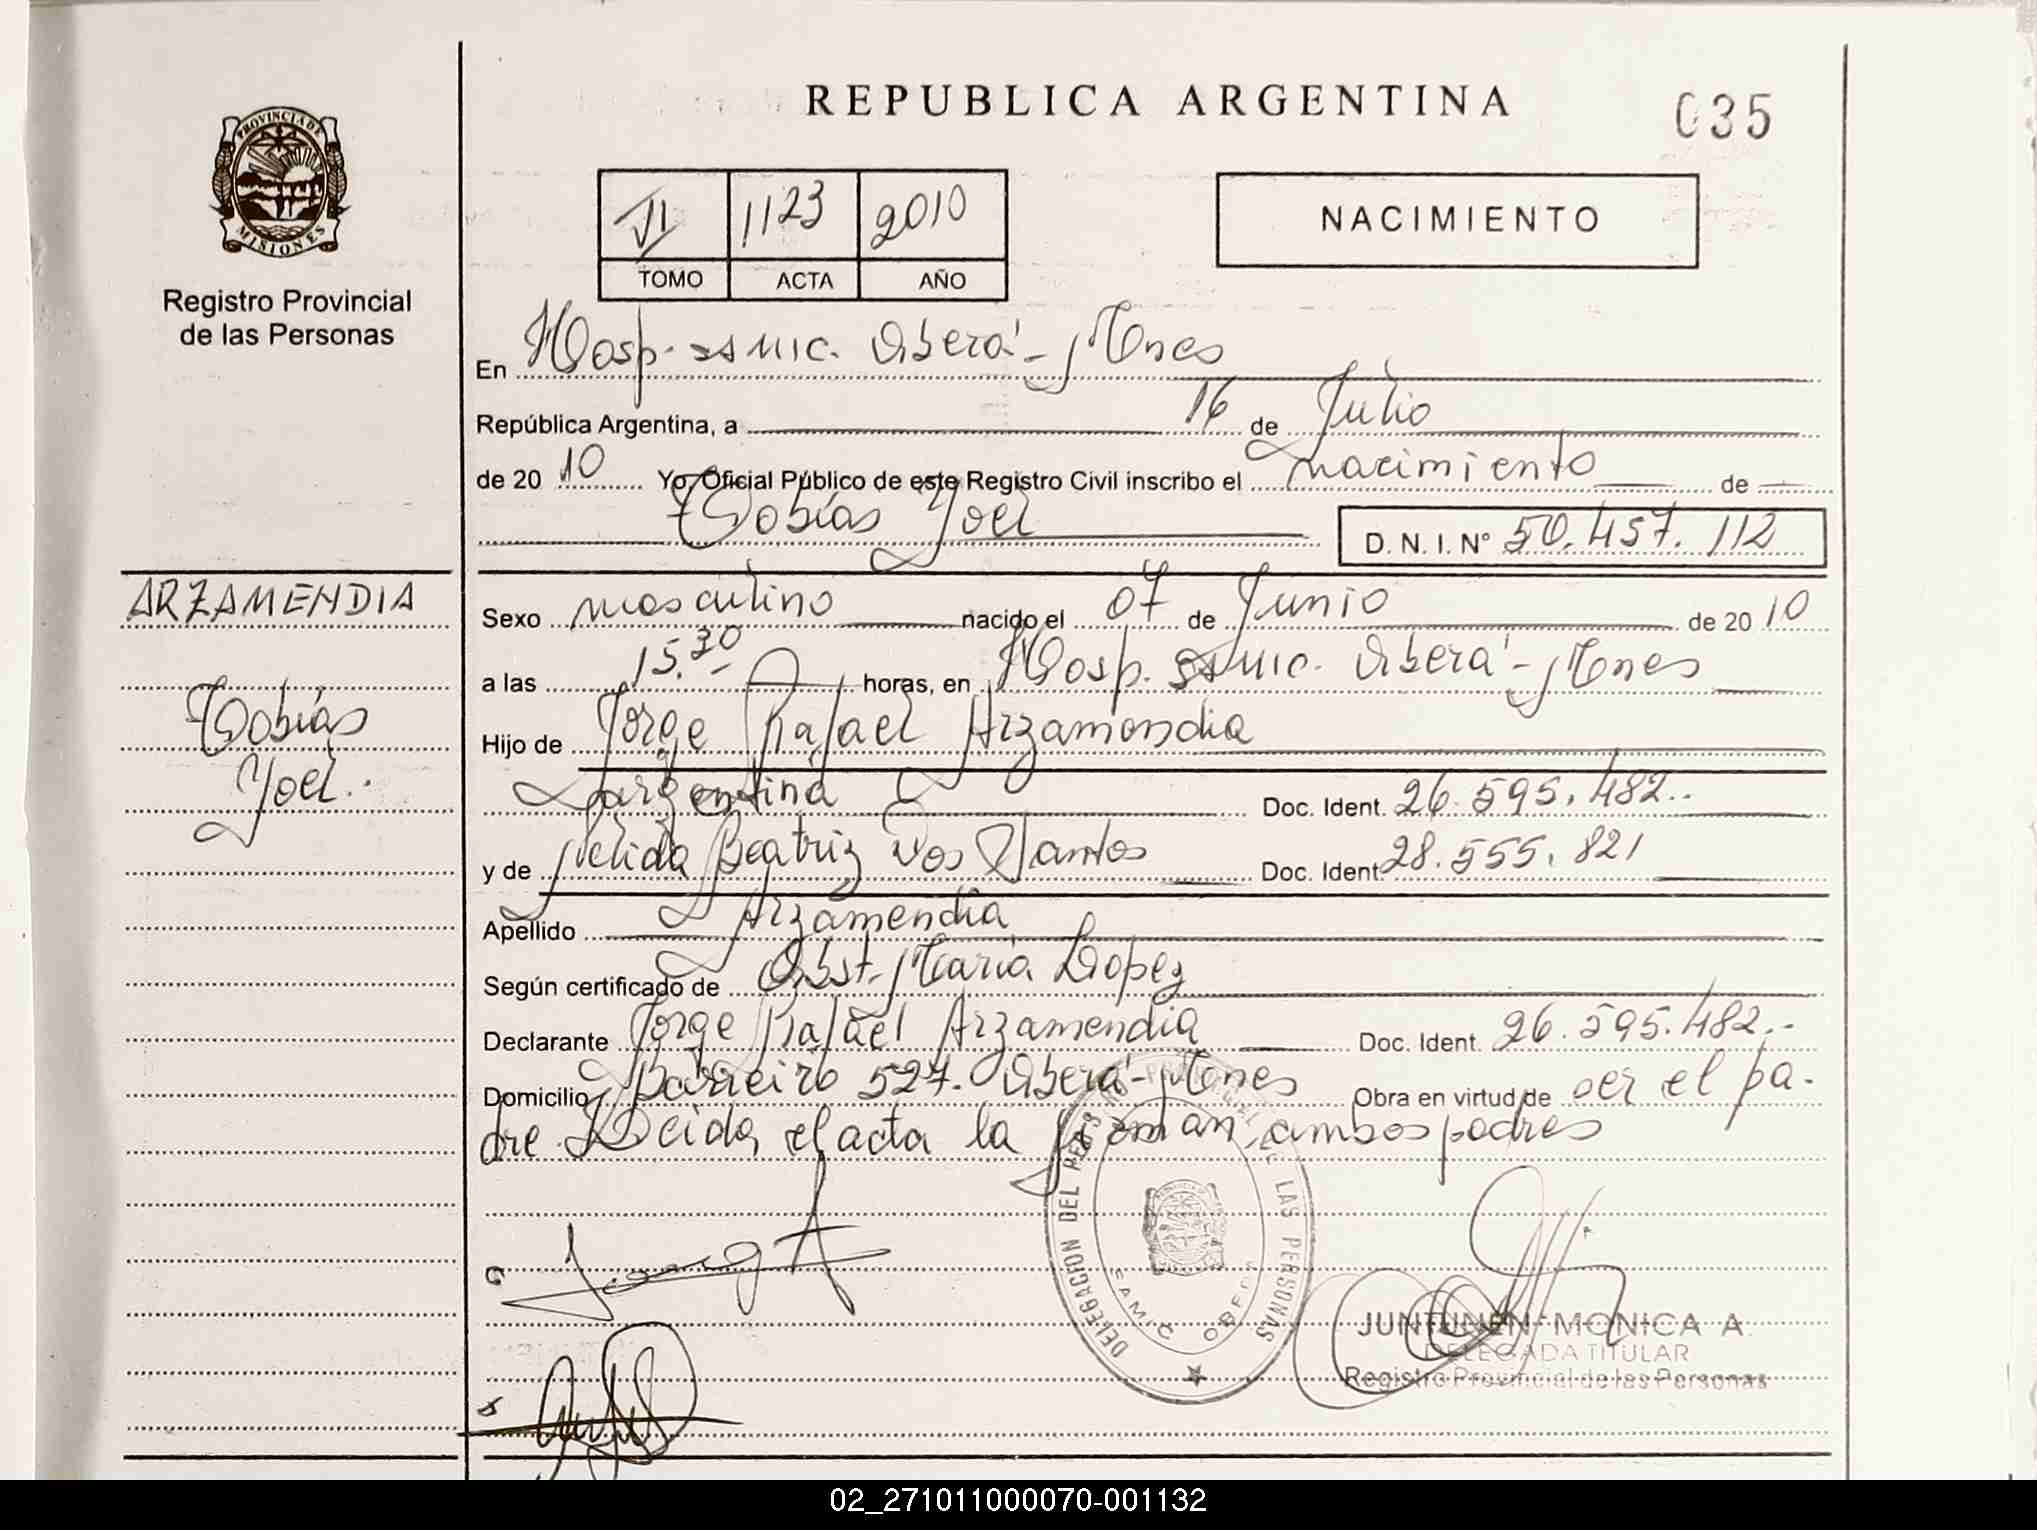 REPUBLICA ARGENTINA
035
PROVINCIA DE
MISIONES
Registro Provincial
de las Personas
VI 1123 2010
TOMO ACTA AÑO
NACIMIENTO
En Hosp. SAMIC. Oberá - Mnes
República Argentina, a 16 de Julio
de 20 10 Yo, Oficial Público de este Registro Civil inscribo el nacimiento de
Tobías Yoel D. N. I. N° 50.457.112
ARZAMENDIA
Tobías
Yoel.
Sexo masculino nacido el 07 de Junio de 20 10
a las 15.30 horas, en Hosp. SAMIC. Oberá - Mnes
Hijo de Jorge Rafael Arzamendia
argentina Doc. Ident. 26.595.482.-
y de Nélida Beatriz Dos Santos Doc. Ident. 28.555.821
Apellido Arzamendia
Según certificado de Obst. María Lopez
Declarante Jorge Rafael Arzamendia Doc. Ident. 26.595.482.-
Domicilio Barreiro 527. Oberá - Mnes Obra en virtud de ser el pa-
dre. Leida el acta la firman ambos padres
DELEGACION DEL REGISTRO PROVINCIAL DE LAS PERSONAS
SAMIC OBERA
JUNTUNEN MONICA A.
DELEGADA TITULAR
Registro Provincial de las Personas
02_271011000070-001132